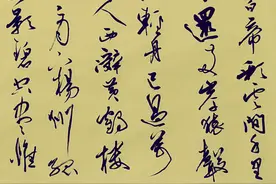 白帝彩雲間千里
還兩岸猿聲
輕舟已過萬
人西辭黃鶴樓
三月下楊州孤
影碧空盡惟